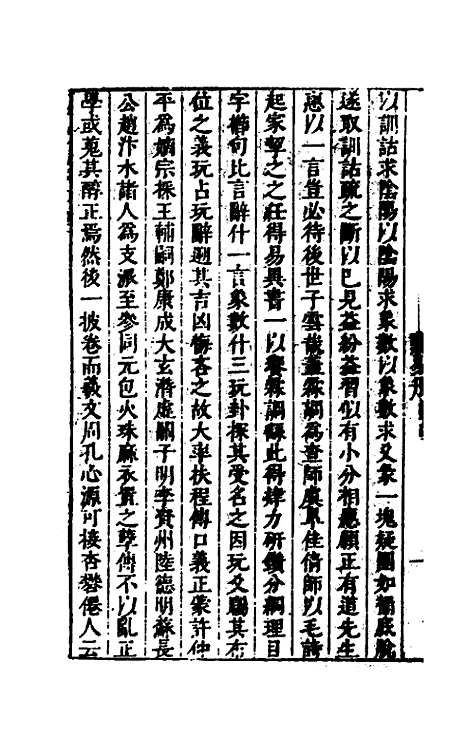 以訓詁求陰陽以陰陽求象數以象數求爻彖一塊疑團如桶底脫
遂取訓詁疏之斷以己見益紛益習似有小分相應願正有道先生
惠以一言豈必待後世子雲哉蓋霖調為查師虞皋佳倩師以毛詩
起家畀之之任得易與書一以畀霖調繇此得肆力研鑽分綱理目
字櫛句比言辭什一言象數什三玩卦探其受名之因玩爻闢其布
位之義玩占玩辭遡其吉凶悔吝之故大率扶程傳口義正蒙許仲
平為嫡宗採王輔嗣鄭康成大玄潛虛關子明李資州陸德明蘇長
公趙汴水諸人為支派至參同元包火珠麻衣置之孽傳不以亂正
學或蒐其醇正焉然後一披卷而羲文周孔心源可接杏礬倦人云
一